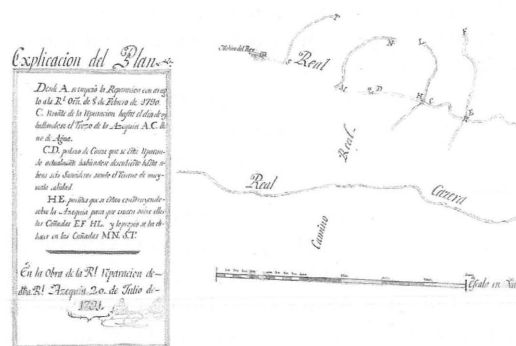 Explicacion del Plan
Desde A. se empezó la Reparacion con arreg
lo a la Rl. Orn. de 8 de Febrero de 1790.
C. Remate de la reparacion hasta el dia de oy
hallandose el Trozo de la Azequia A.C. lle
no de Agua.
C.D. pedazo de Cauze que se está reparan
do actualmente habiendose descubierto hasta a
hora seis Sumideros siendo el Terreno de muy
mala calidad.
H.E. puentes que se estan construyendo
sobre la Azequia para que crucen sobre ella
las Cañadas E.F. H.L. y lo propio se ha de
hacer en las Cañadas M.N. S.T.
En la Obra de la Rl. reparacion de
dha Rl. Azequia 20. de Julio de
1791.
Molino del Rey
Real
T
N
L
F
S
M
D
H
C
E
Real
Real
Carera
Camino
Escala en